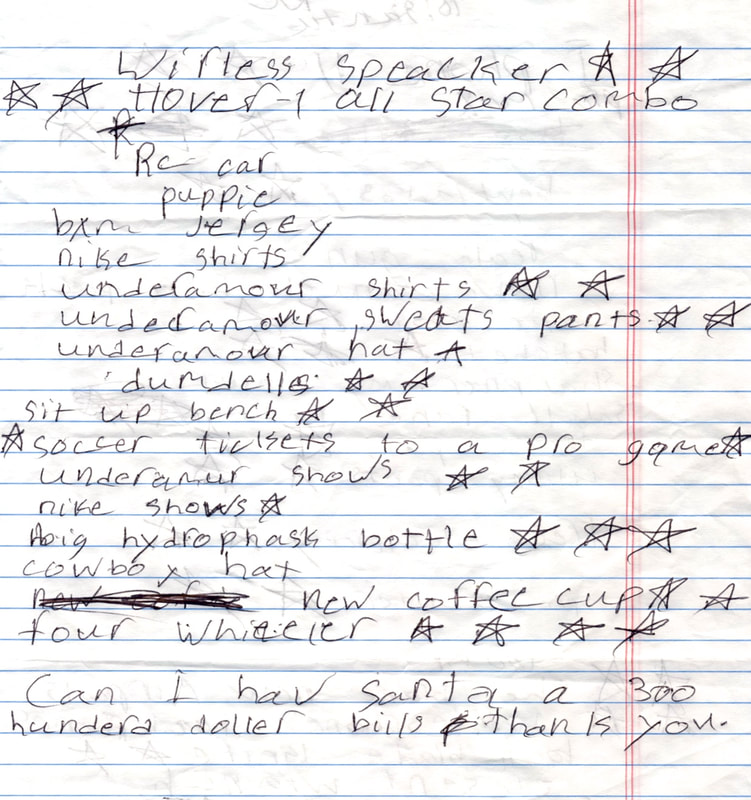 Wirless speacker ☆ ☆
☆ ☆ Hover-1 all star combo
☆
Rc car
puppie
bxm Jergey
nike shirts
underamour shirts ☆ ☆
underamour sweats pants ☆ ☆
underamour hat ☆
dumdells ☆ ☆
sit up bench ☆ ☆
☆ soccer tickets to a pro game ☆
underamur shows ☆ ☆
nike shows ☆
big hydrophask bottle ☆ ☆ ☆
cowboy hat
new coffee cup ☆ ☆
four wheeler ☆ ☆ ☆ ☆
Can I hav Santa a 300
hunderd doller bills thank you.